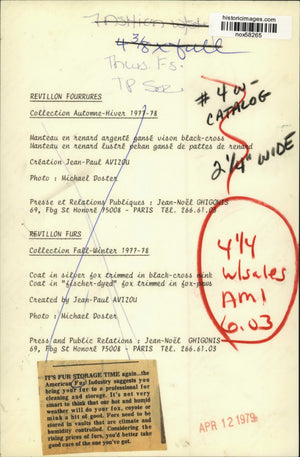 historicimages.com
nox58265
4 3/8 x full
Thurs. Fs.
# 4 W-
CATALOG
2 1/4" WIDE
REVILLON FOURRURES
Collection Automne-Hiver 1977-78
Manteau en renard argenté gansé vison black-cross
Manteau en renard lustré pekan gansé de pattes de renard
Création Jean-Paul AVIZOU
Photo : Michael Doster
Presse et Relations Publiques : Jean-Noël GHIGONIS
69, Fbg St Honoré 75008 - PARIS Tél. 266.61.03
REVILLON FURS
Collection Fall-Winter 1977-78
Coat in silver fox trimmed in black-cross mink
Coat in "fischer-dyed" fox trimmed in fox-paws
Created by Jean-Paul AVIZOU
Photo : Michael Doster
Press and Public Relations : Jean-Noël GHIGONIS
69, Fbg St Honoré 75008 - PARIS Tél. 266.61.03
4 1/4
W/sales
AM1
6.03
IT'S FUR STORAGE TIME again...the
American Fur Industry suggests you
bring your fur to a professional for
cleaning and storage. It's not very
smart to think that our hot and humid
weather will do your fox, coyote or
mink a bit of good. Furs need to be
stored in vaults that are climate and
humidity controlled. Considering the
rising prices of furs, you'd better take
good care of the one you've got.
APR 12 1979